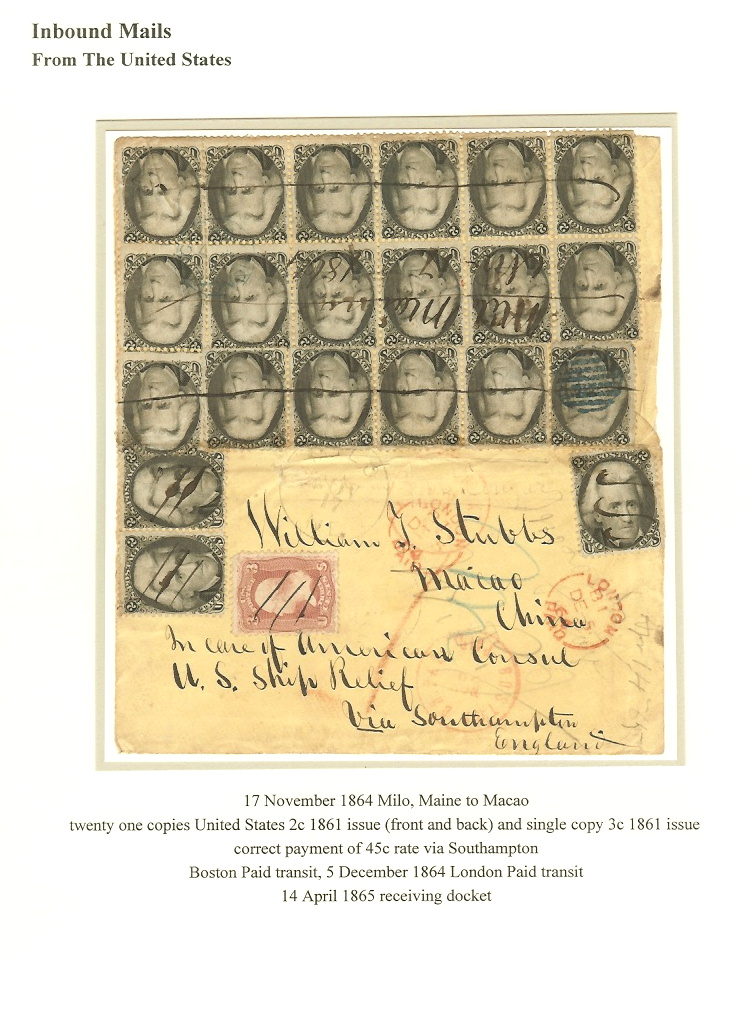 Inbound Mails
From The United States
William J. Stubbs
Macao
China
In care of American Consul
U. S. Ship Relief
Via Southampton
England
LONDON
DE 5
PAID
17 November 1864 Milo, Maine to Macao
twenty one copies United States 2c 1861 issue (front and back) and single copy 3c 1861 issue
correct payment of 45c rate via Southampton
Boston Paid transit, 5 December 1864 London Paid transit
14 April 1865 receiving docket